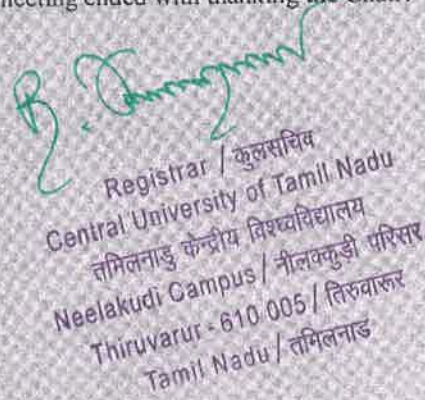 ended with thanking the
Registrar / कुलसचिव
Central University of Tamil Nadu
तमिलनाडु केन्द्रीय विश्वविद्यालय
Neelakudi Campus / नीलक्कुडी परिसर
Thiruvarur - 610 005 / तिरुवारूर
Tamil Nadu / तमिलनाडु